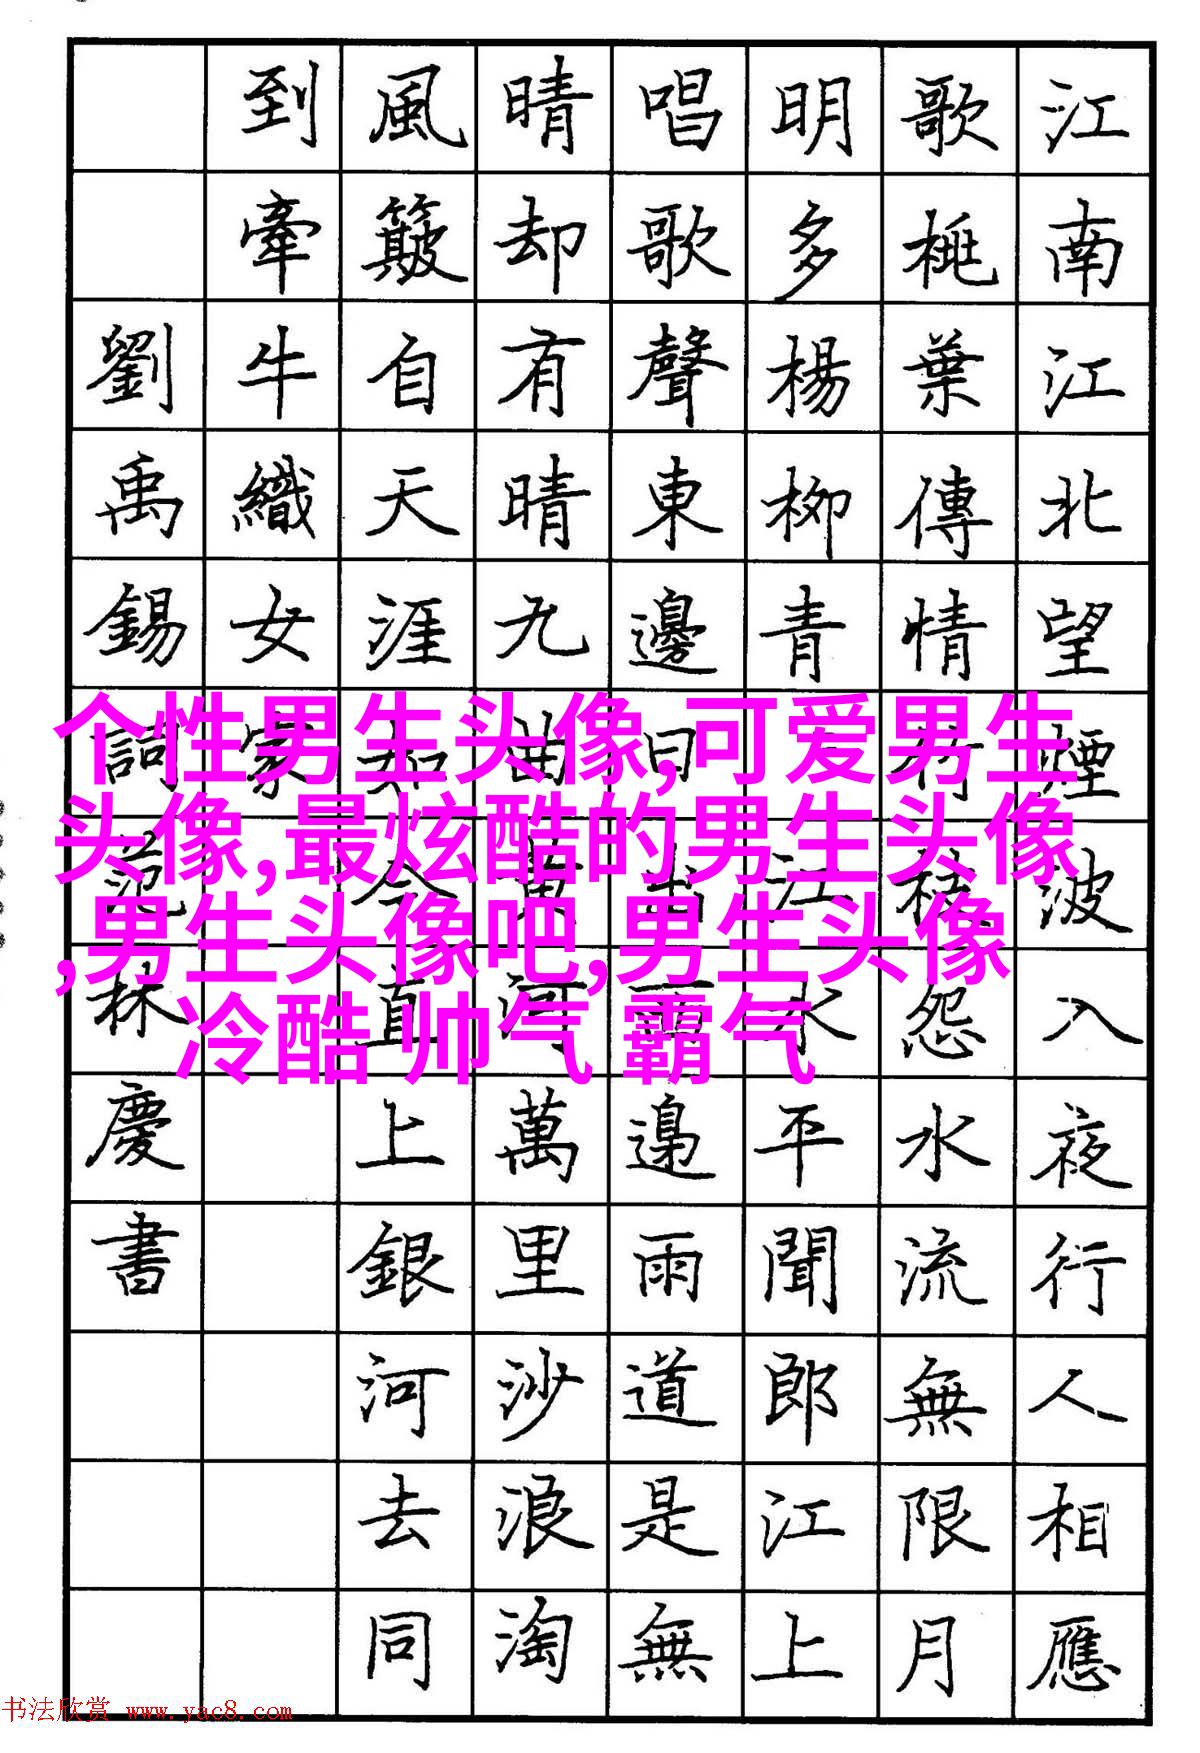 江南江北望煙波入夜行人相應
歌桃葉傳情竹枝怨水流無限月
明多楊柳青江水平聞郎江上
唱歌聲東邊日出西邊雨道是無
晴却有晴九曲黄河萬里沙浪淘
風簸自天涯如今直上銀河去同
到牽牛織女家
劉禹錫詞范林慶書
个性男生头像,可爱男生
头像,最炫酷的男生头像
,男生头像吧,男生头像
冷酷 帅气 霸气
书法欣赏 www.yac8.com